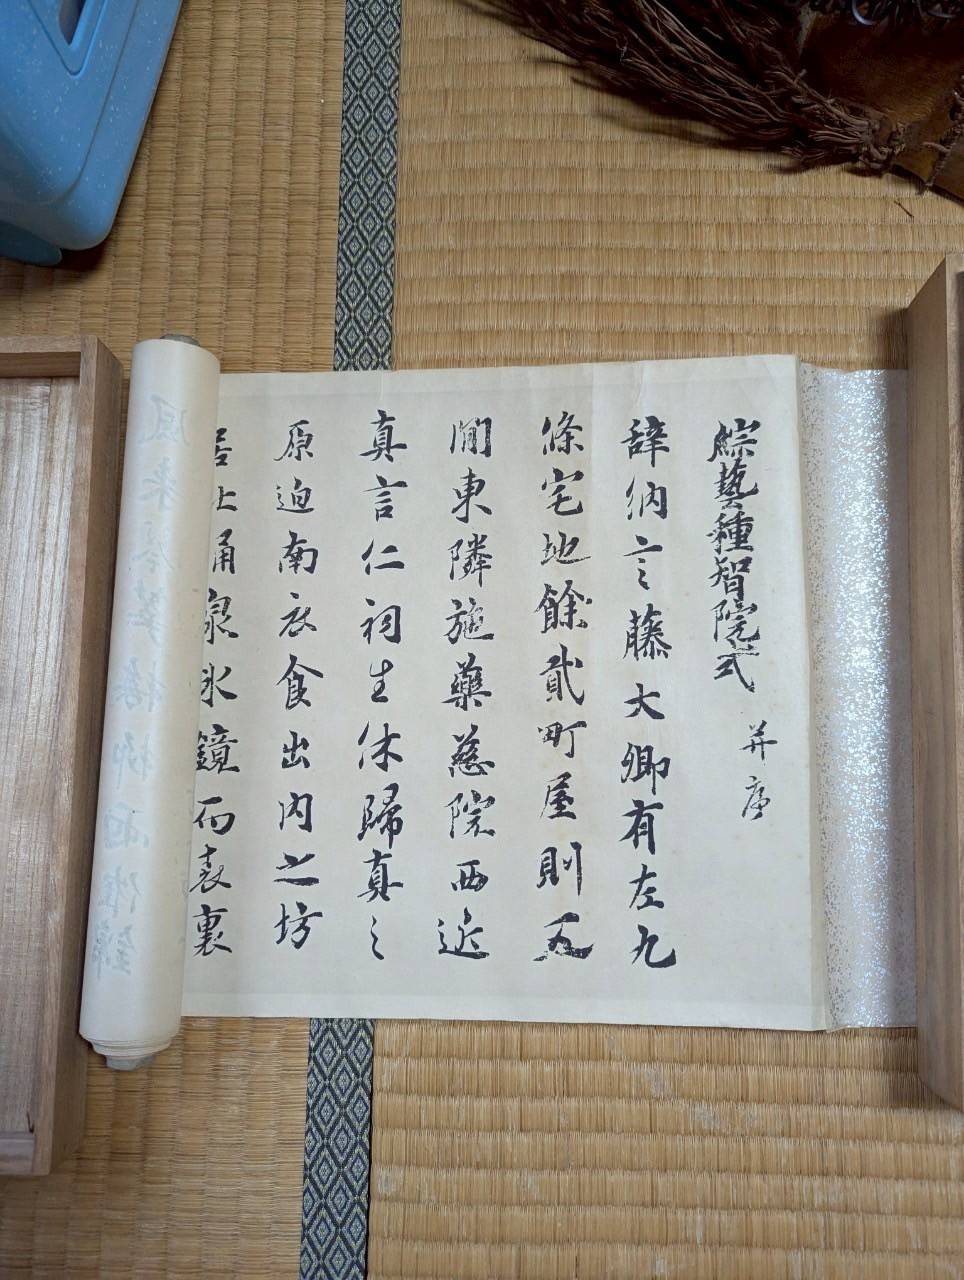 綜藝種智院式 并序
辭納言藤大卿有左九
條宅地餘貳町屋則五
間東隣施藥慈院西近
真言仁祠生休歸真之
原迫南衣食出内之坊
居北涌泉水鏡而表裏